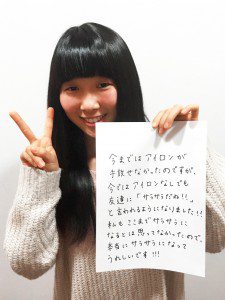 今まではアイロンが
手放せなかったのですが、
今ではアイロンなしでも
友達に「サラサラだね!!」
と言われるようになりました!!
私もここまでサラサラに
なるとは思ってなかったので、
本当にサラサラになって
うれしいです!!!